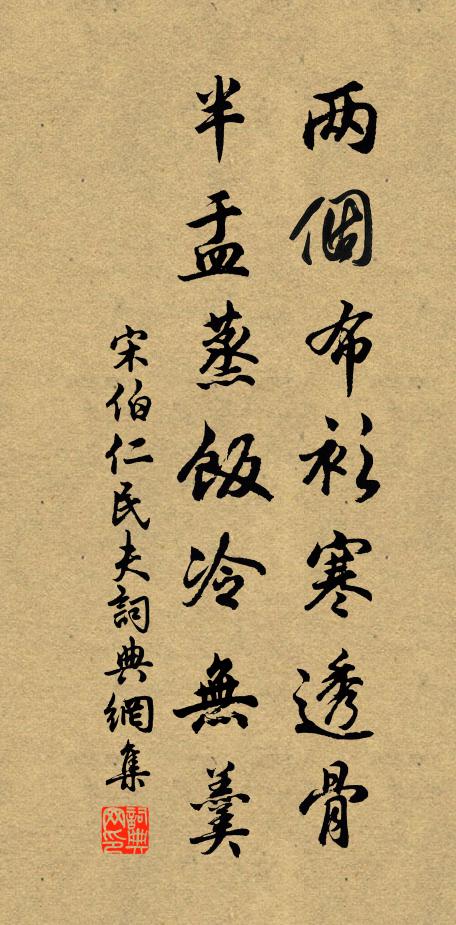 两個布衫寒透骨
半盂蒸飯冷無羹
宋伯仁民夫詞典網集
詞典网印